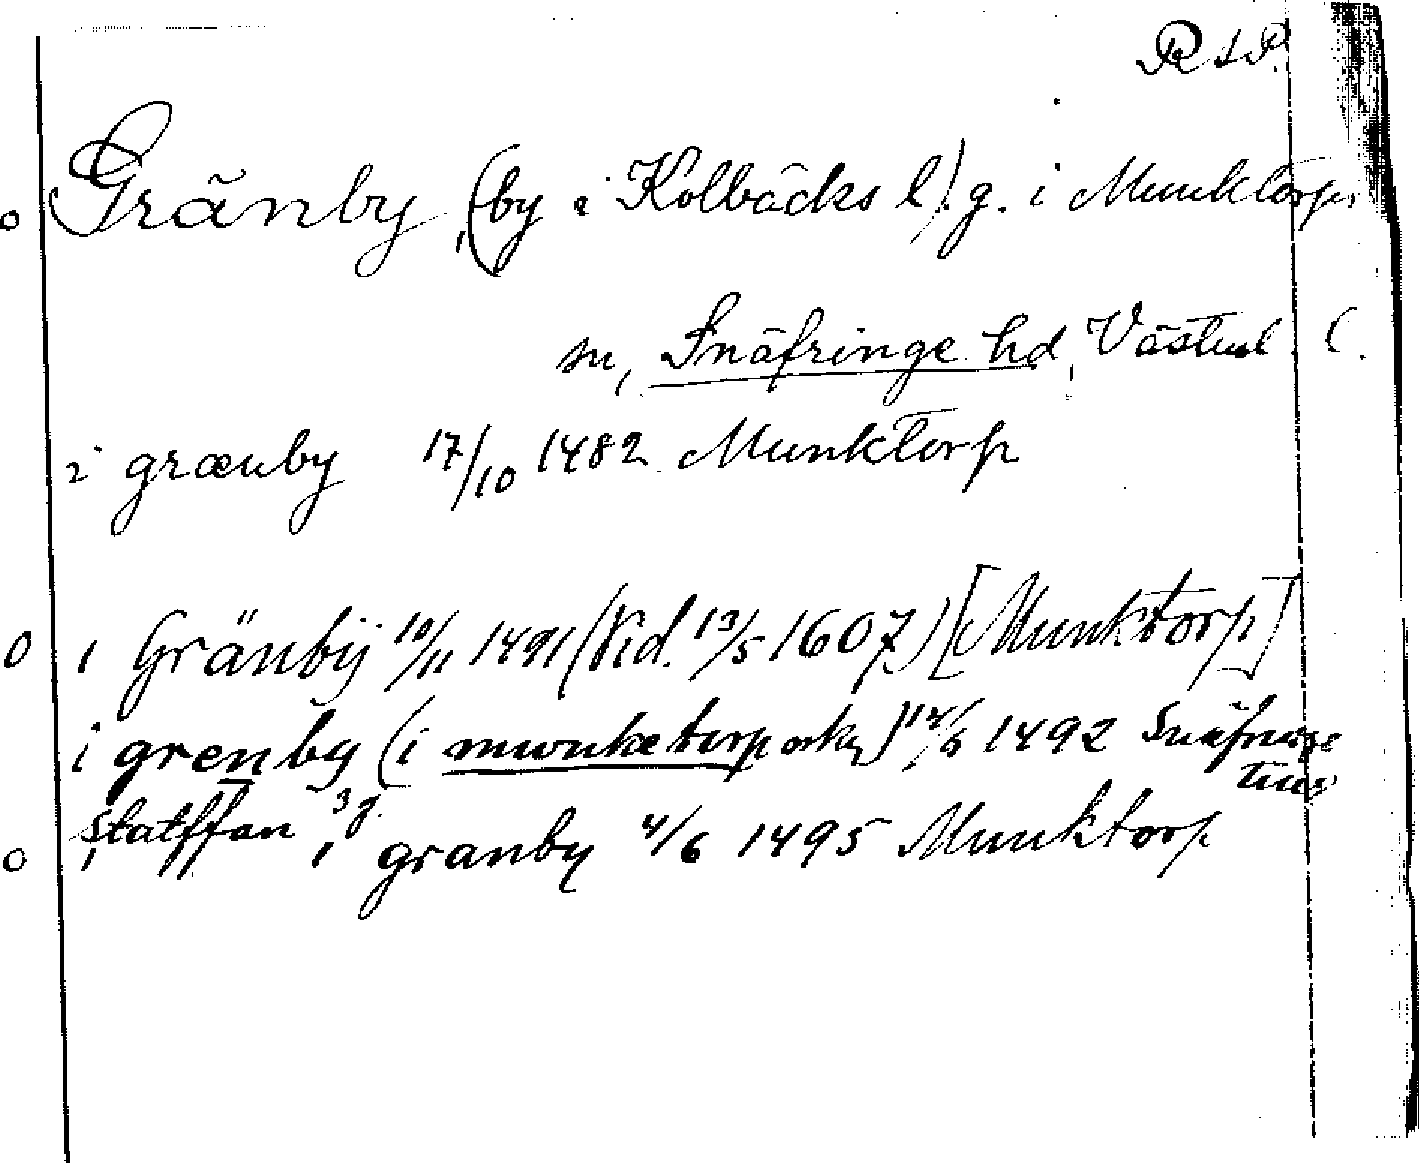 Gränby, (by i Kolbäcks l.) g. i Munktorps
sn, Snäfringe hd, Västml l.
i grænby 17/10 1482 Munktorp
i Gränbÿ 10/11 1491 (Vid. 13/5 1607) [Munktorp]
i grenby (i munketorp sokn) 14/6 1492 Snäfringe
ting
staffan i 3 g. granby 4/6 1495 Munktorp